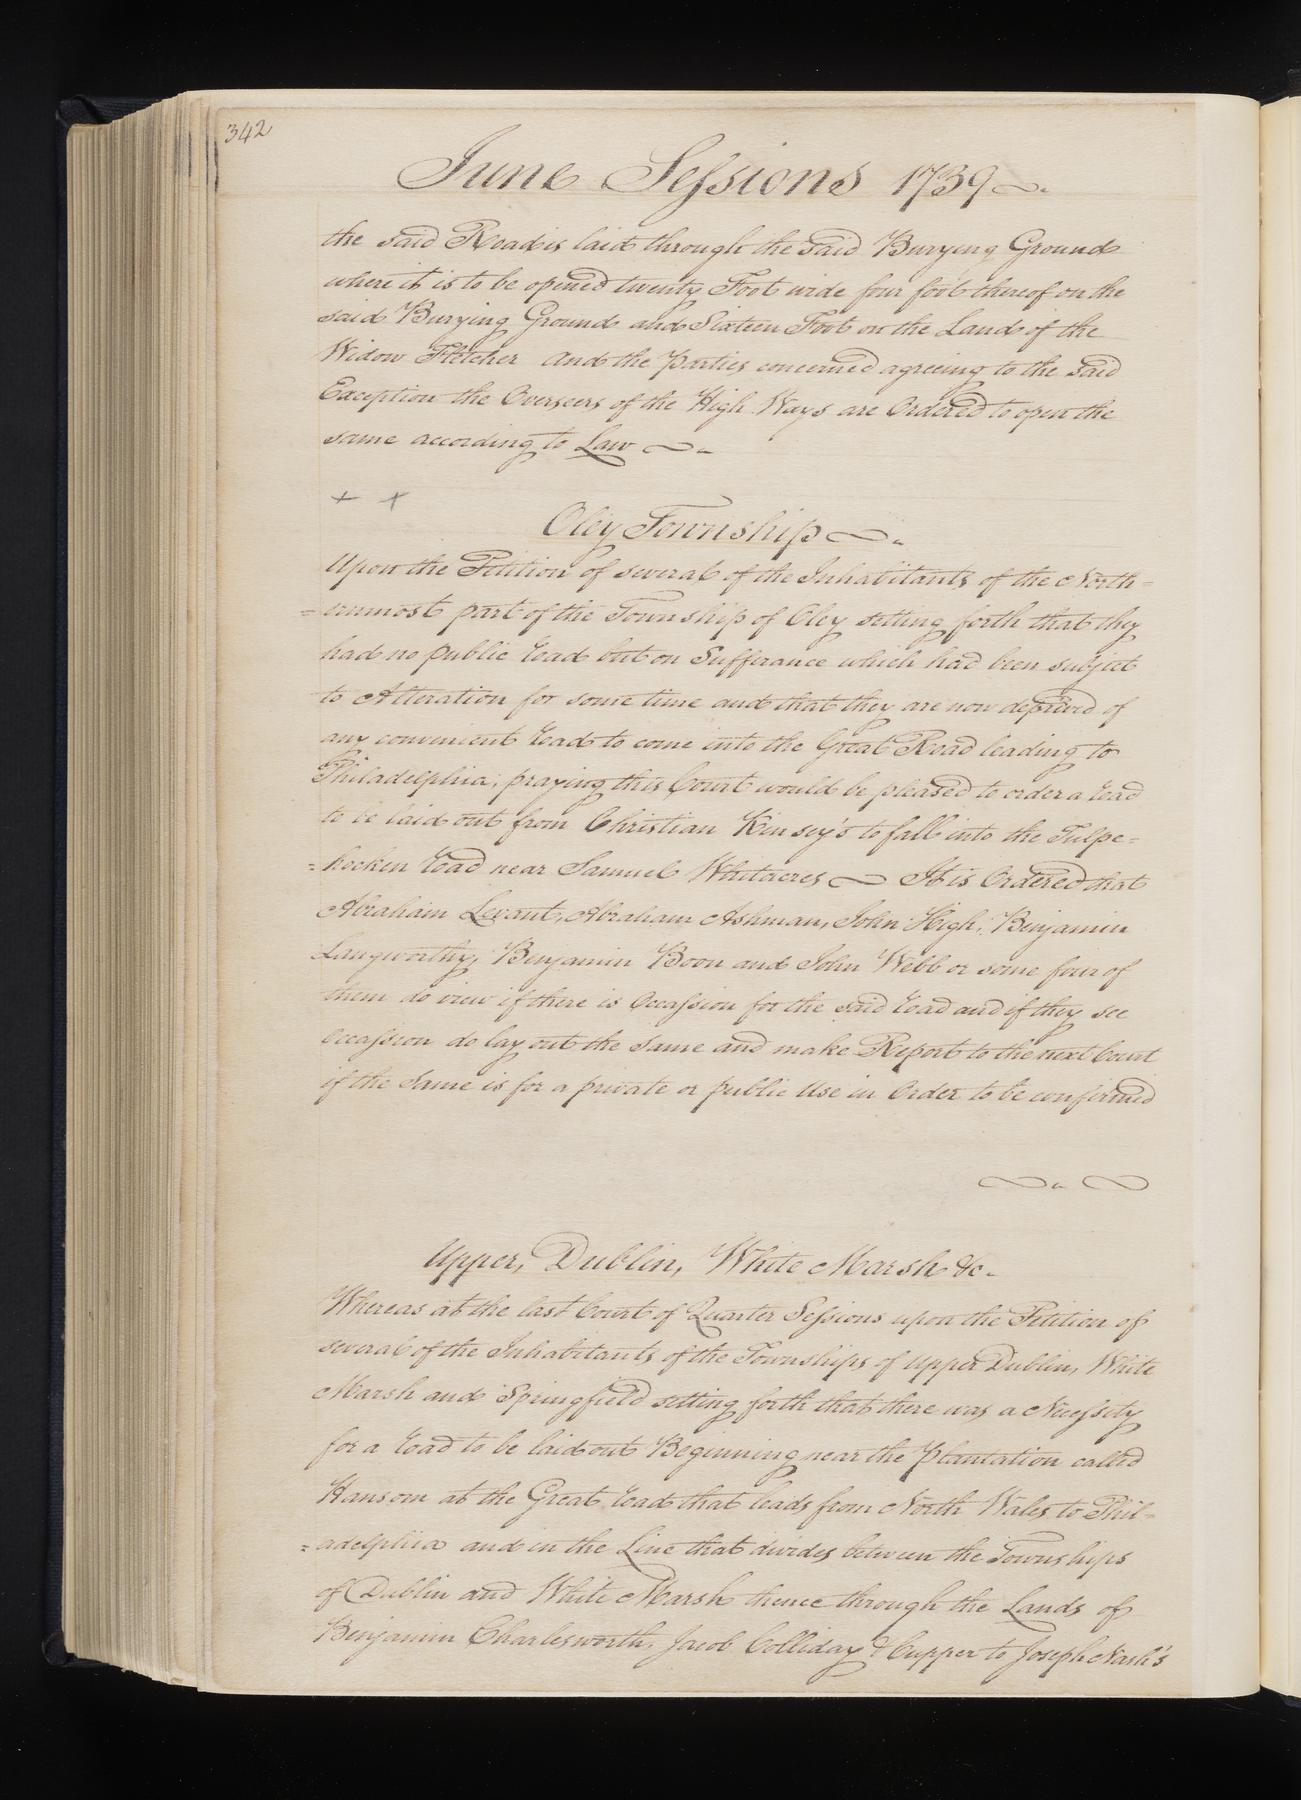 342
June Sessions 1739
the said Road is laid through the said Burying Ground
where it is to be opened twenty Foot wide four foot thereof on the
said Burying Ground and Sixteen Foot on the Land of the
Widow Fletcher And the Parties concerned agreeing to the said
Exception the Overseers of the High Ways are Ordered to open the
same according to Law
+ +
Oley Township
Upon the Petition of several of the Inhabitants of the North=
=ernmost part of the Township of Oley setting forth that they
had no public Road but on Sufferance which had been subject
to Alteration for some time and that they are now deprived of
any convenient Road to come into the Great Road leading to
Philadelphia; praying this Court would be pleased to order a Road
to be laid out from Christian Kinsey's to fall into the Tulpe=
=hocken Road near Samuel Whitacres It is Ordered that
Abraham Levant, Abraham Ashman, John High, Benjamin
Langworthy, Benjamin Boon and John Webb or some four of
them do view if there is Occassion for the said Road and if they see
Occassion do lay out the same and make Report to the next Court
if the same is for a private or public Use in Order to be confirmed
Upper, Dublin, White Marsh &c.
Whereas at the last Court of Quarter Sessions upon the Petition of
several of the Inhabitants of the Townships of Upper Dublin, White
Marsh and Springfield setting forth that there was a Necessity
for a Road to be laid out Beginning near the Plantation called
Hansom at the Great Road that leads from North Wales to Phil=
=adelphia and in the Line that divides between the Townships
of Dublin and White Marsh thence through the Lands of
Benjamin Charlesworth, Jacob Colliday & Cupper to Joseph Nash's